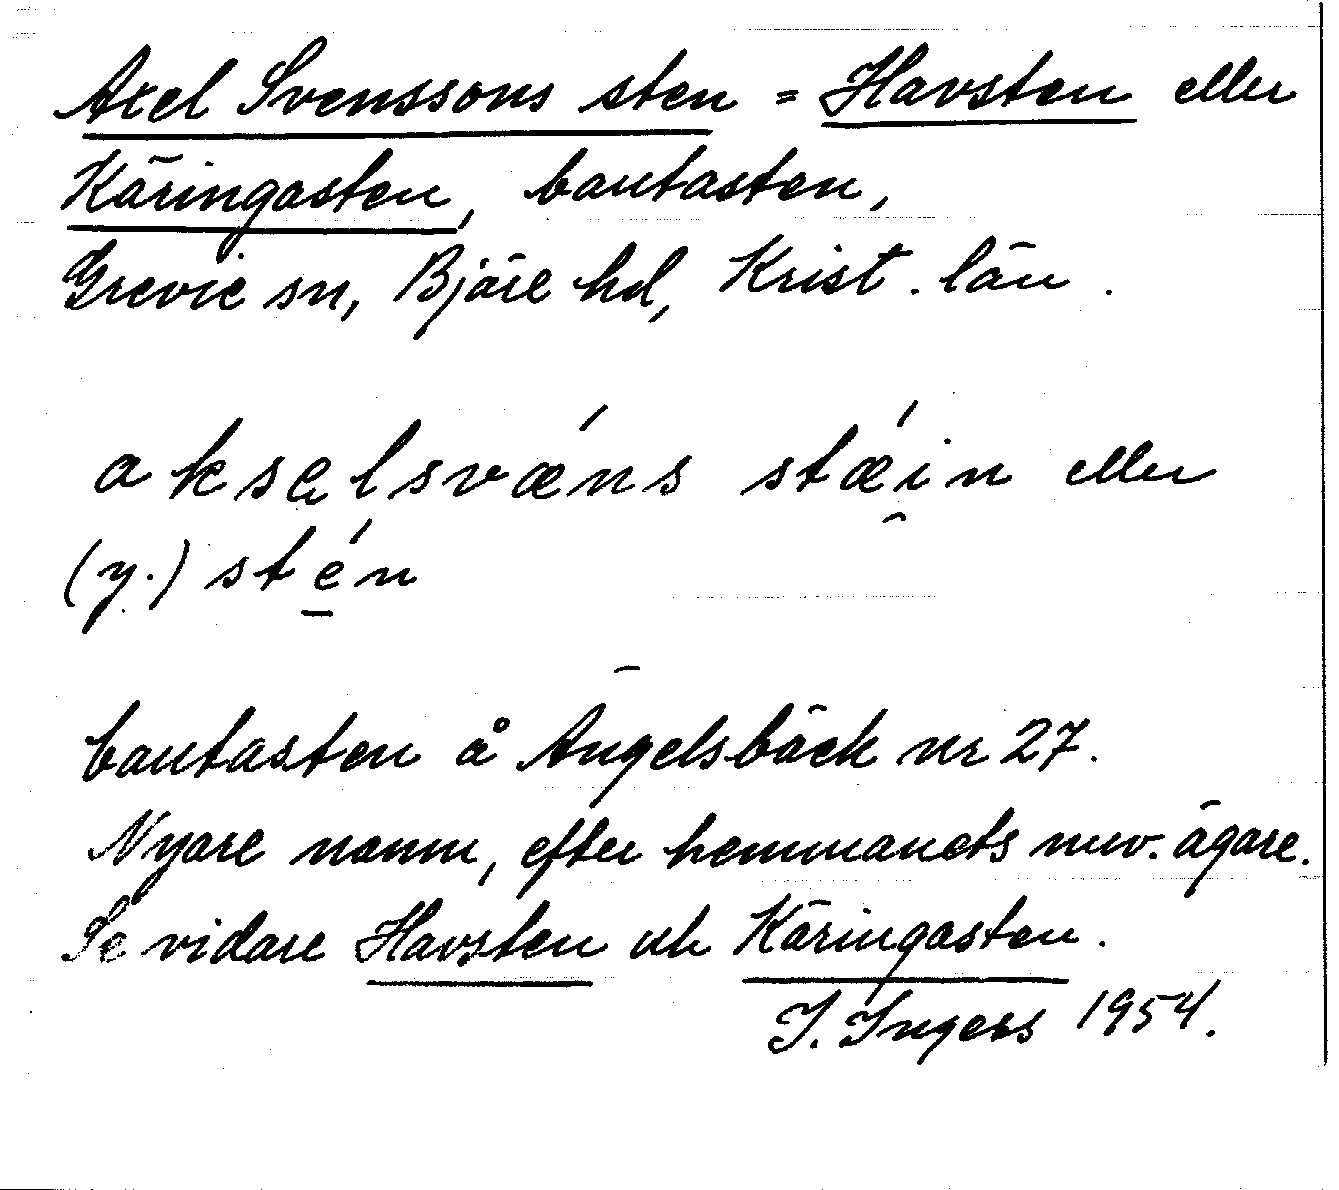 Axel Svenssons sten = Havsten eller
Käringasten, bautasten,
Grevie sn, Bjäre hd, Krist. län.
aksəlsvǽns stǽi̯n eller
(y.) stén
bautasten å Ängelsbäck nr 27.
Nyare namn, efter hemmanets nuv. ägare.
Se vidare Havsten och Käringasten.
I. Ingers 1954.